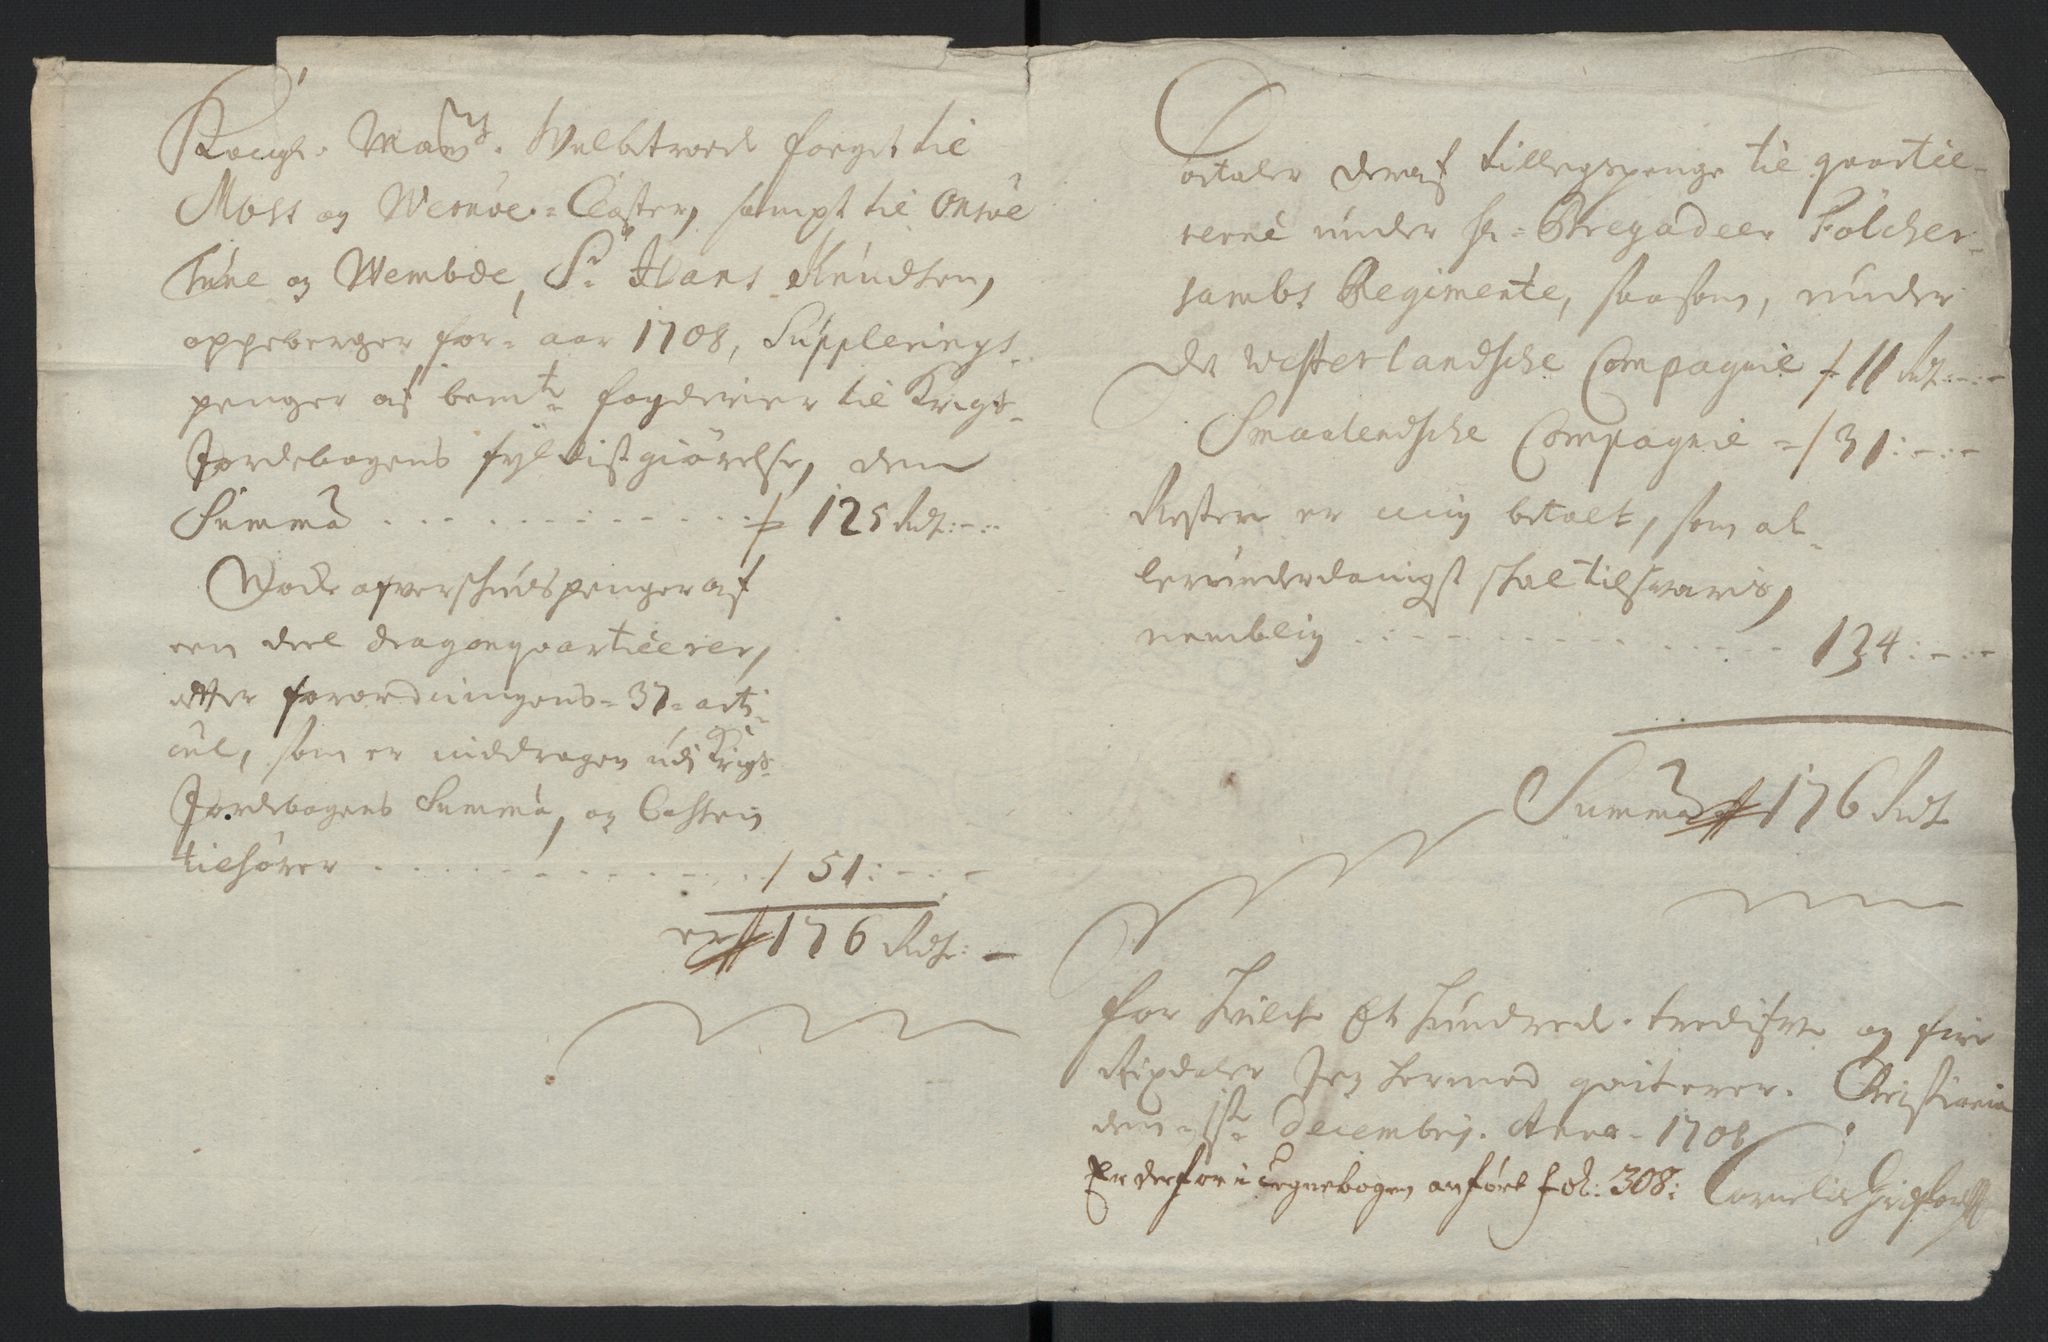 Kongl. Mayts. Velbetroede foeget til
Moss og Wernøe=Closter, sampt til Onsøe
Tune og Wembde, Sr. Hans Knudsen,
oppeberger for= aar 1708, Supplerings-
penger af bemte fogderier til Krigs-
Jordebogens fyldistgiørelse, den
Summa ............. 125 Rdr:-:-
Noch afverschuds penger af
een deel dragonqvarticerer,
etter forordningens= 37= arti-
cul, som er inddragen udj Krigs-
Jordebogens Summa, og Cassen
tilhører ............. / 51:-:-
er 176 Rdr:-
betaler deraf tillegspenge til qvartie-
rerne under Hr= Bregadeer Fölcher-
sambs Regimente, saasom, under
Det Westerlandsche Compagnie 11 Rdr:-:-
Smaalendsche Compagnie =/ 31:-:-
Resten er mig betalt, som al-
lerunderdanigst skal tilsvaris,
nemblig ............. 134:-:-
Summa 176 Rdr
for hvilche Et hundrede tredifve og fire
Rixdaler Jeg hermed qviterer. Christiania
den 1ste Decembrj. Anno 1708
Er derfor i Regnebogen anført fol: 308:
Cornelis